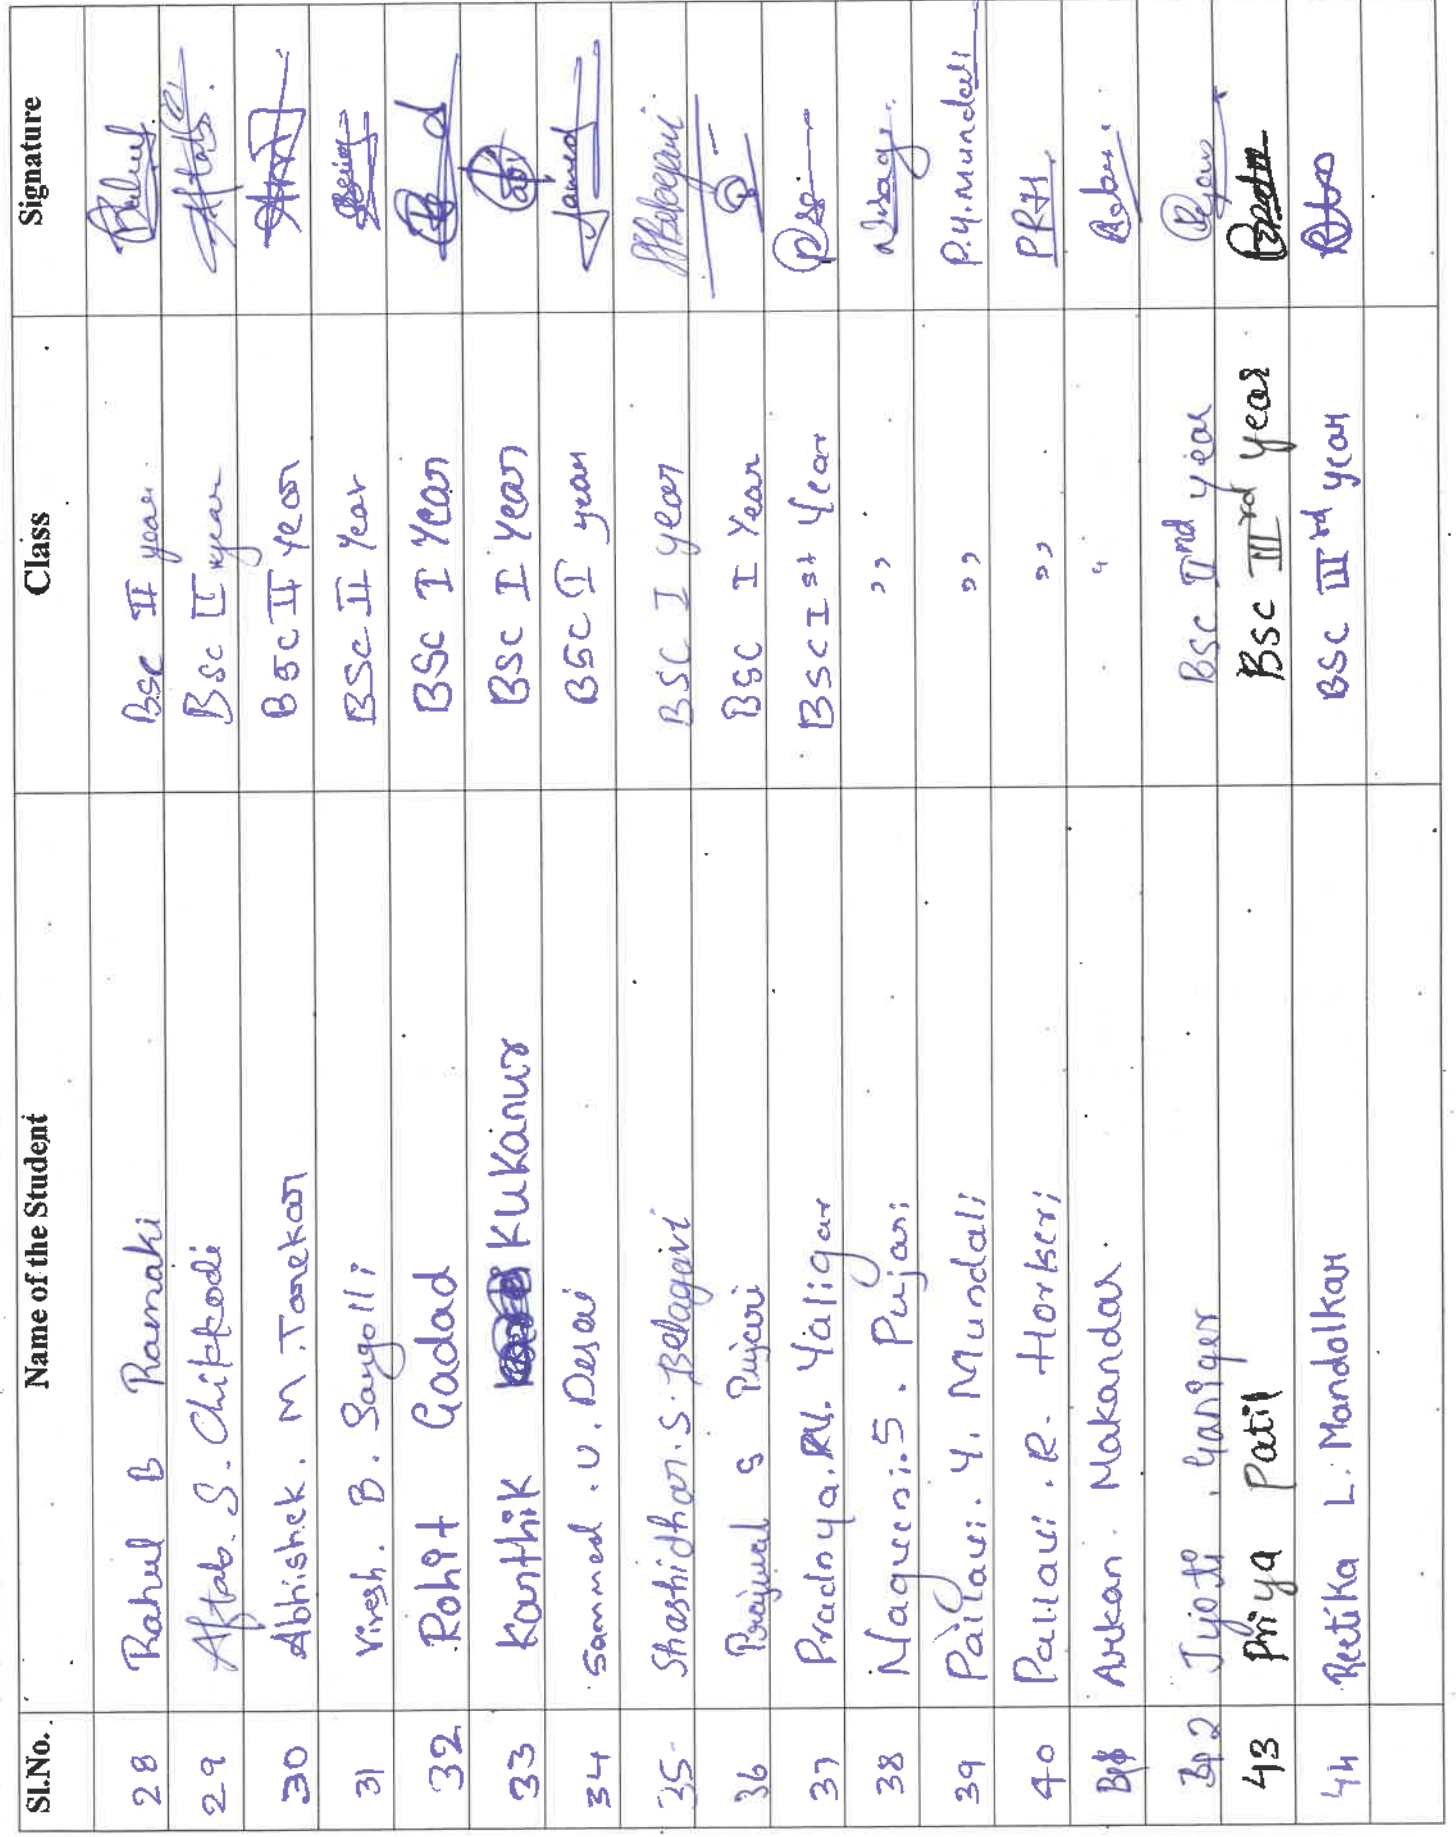 Sl.No. Name of the Student Class Signature
28 Rahul B Ramaki Bsc II year Rahul
29 Aftab. S. Chikkodi Bsc II year Aftab
30 Abhishek. M. Tarekar BSc II year
31 Viresh. B. Sangolli BSc II Year
32 Rohit Gadad BSc I Year
33 Karthik Kukanur Bsc I Year
34 Sammed. U. Desai BSc I year Sammed
35 Shashidhar. S. Belagavi BSC I year SBelagavi
36 Prajwal S Pujari BSC I Year
37 Pradnya. M. Yaligar BSC I st Year
38 Nagveni. S. Pujari ,,
39 Pallavi. Y. Mundali ,, P.Y.Mundali
40 Pallavi. R. Horkeri ,, PRH
Arkan. Makandar. "
2 Jyoti. Ganiger BSC IInd year
43 Priya Patil BSC IIIrd year
44 Reetika L. Mandolkar BSC IIIrd year